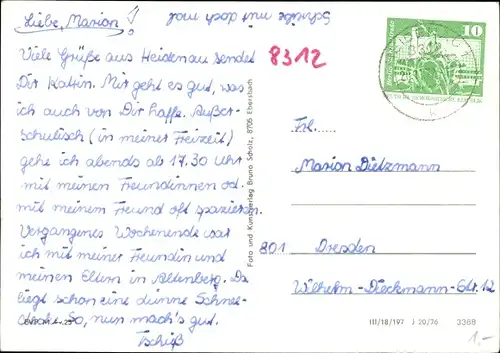 Schreibe mir doch mal
Liebe Marion!
Viele Grüße aus Heidenau sendet
Dir Katrin. Mir geht es gut, was
ich auch von Dir hoffe. Außer-
schulisch (in meiner Freizeit)
gehe ich abends ab 17.30 Uhr
mit meinen Freundinnen od.
mit meinem Freund oft spazieren.
Vergangenes Wochenende war
ich mit meiner Freundin und
meinen Eltern in Altenberg. Da
liegt schon eine dünne Schnee-
decke. So, nun mach's gut.
Tschüß
8312
Foto und Kunstverlag Bruno Scholz, 8705 Ebersbach
10
Frl.
Marion Dietzmann
801 Dresden
Wilhelm-Dieckmann-Str. 12
III/18/197 J 20/76 3368
1.-